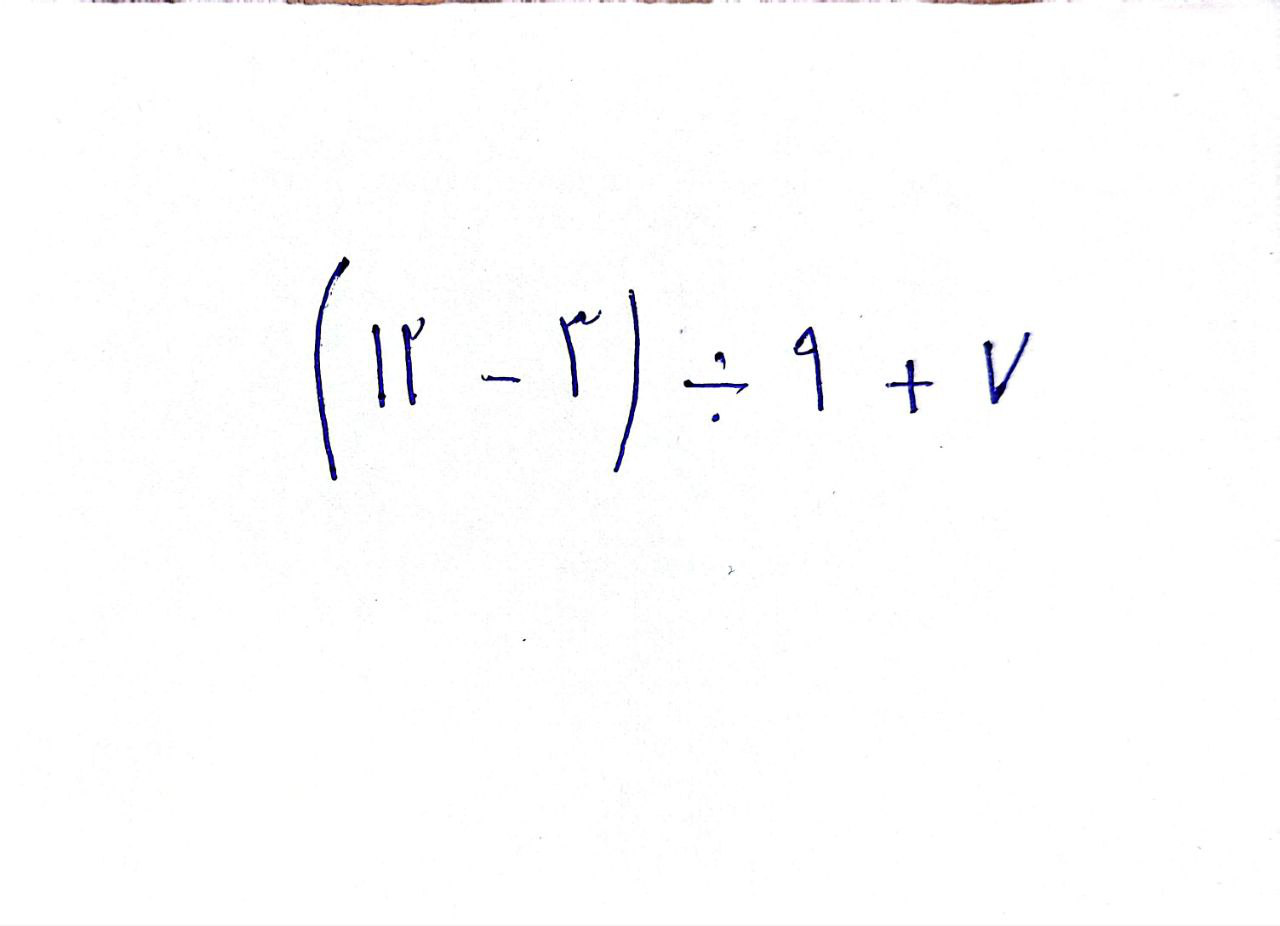 (۱۲ - ۳) ÷ ۹ + ۷